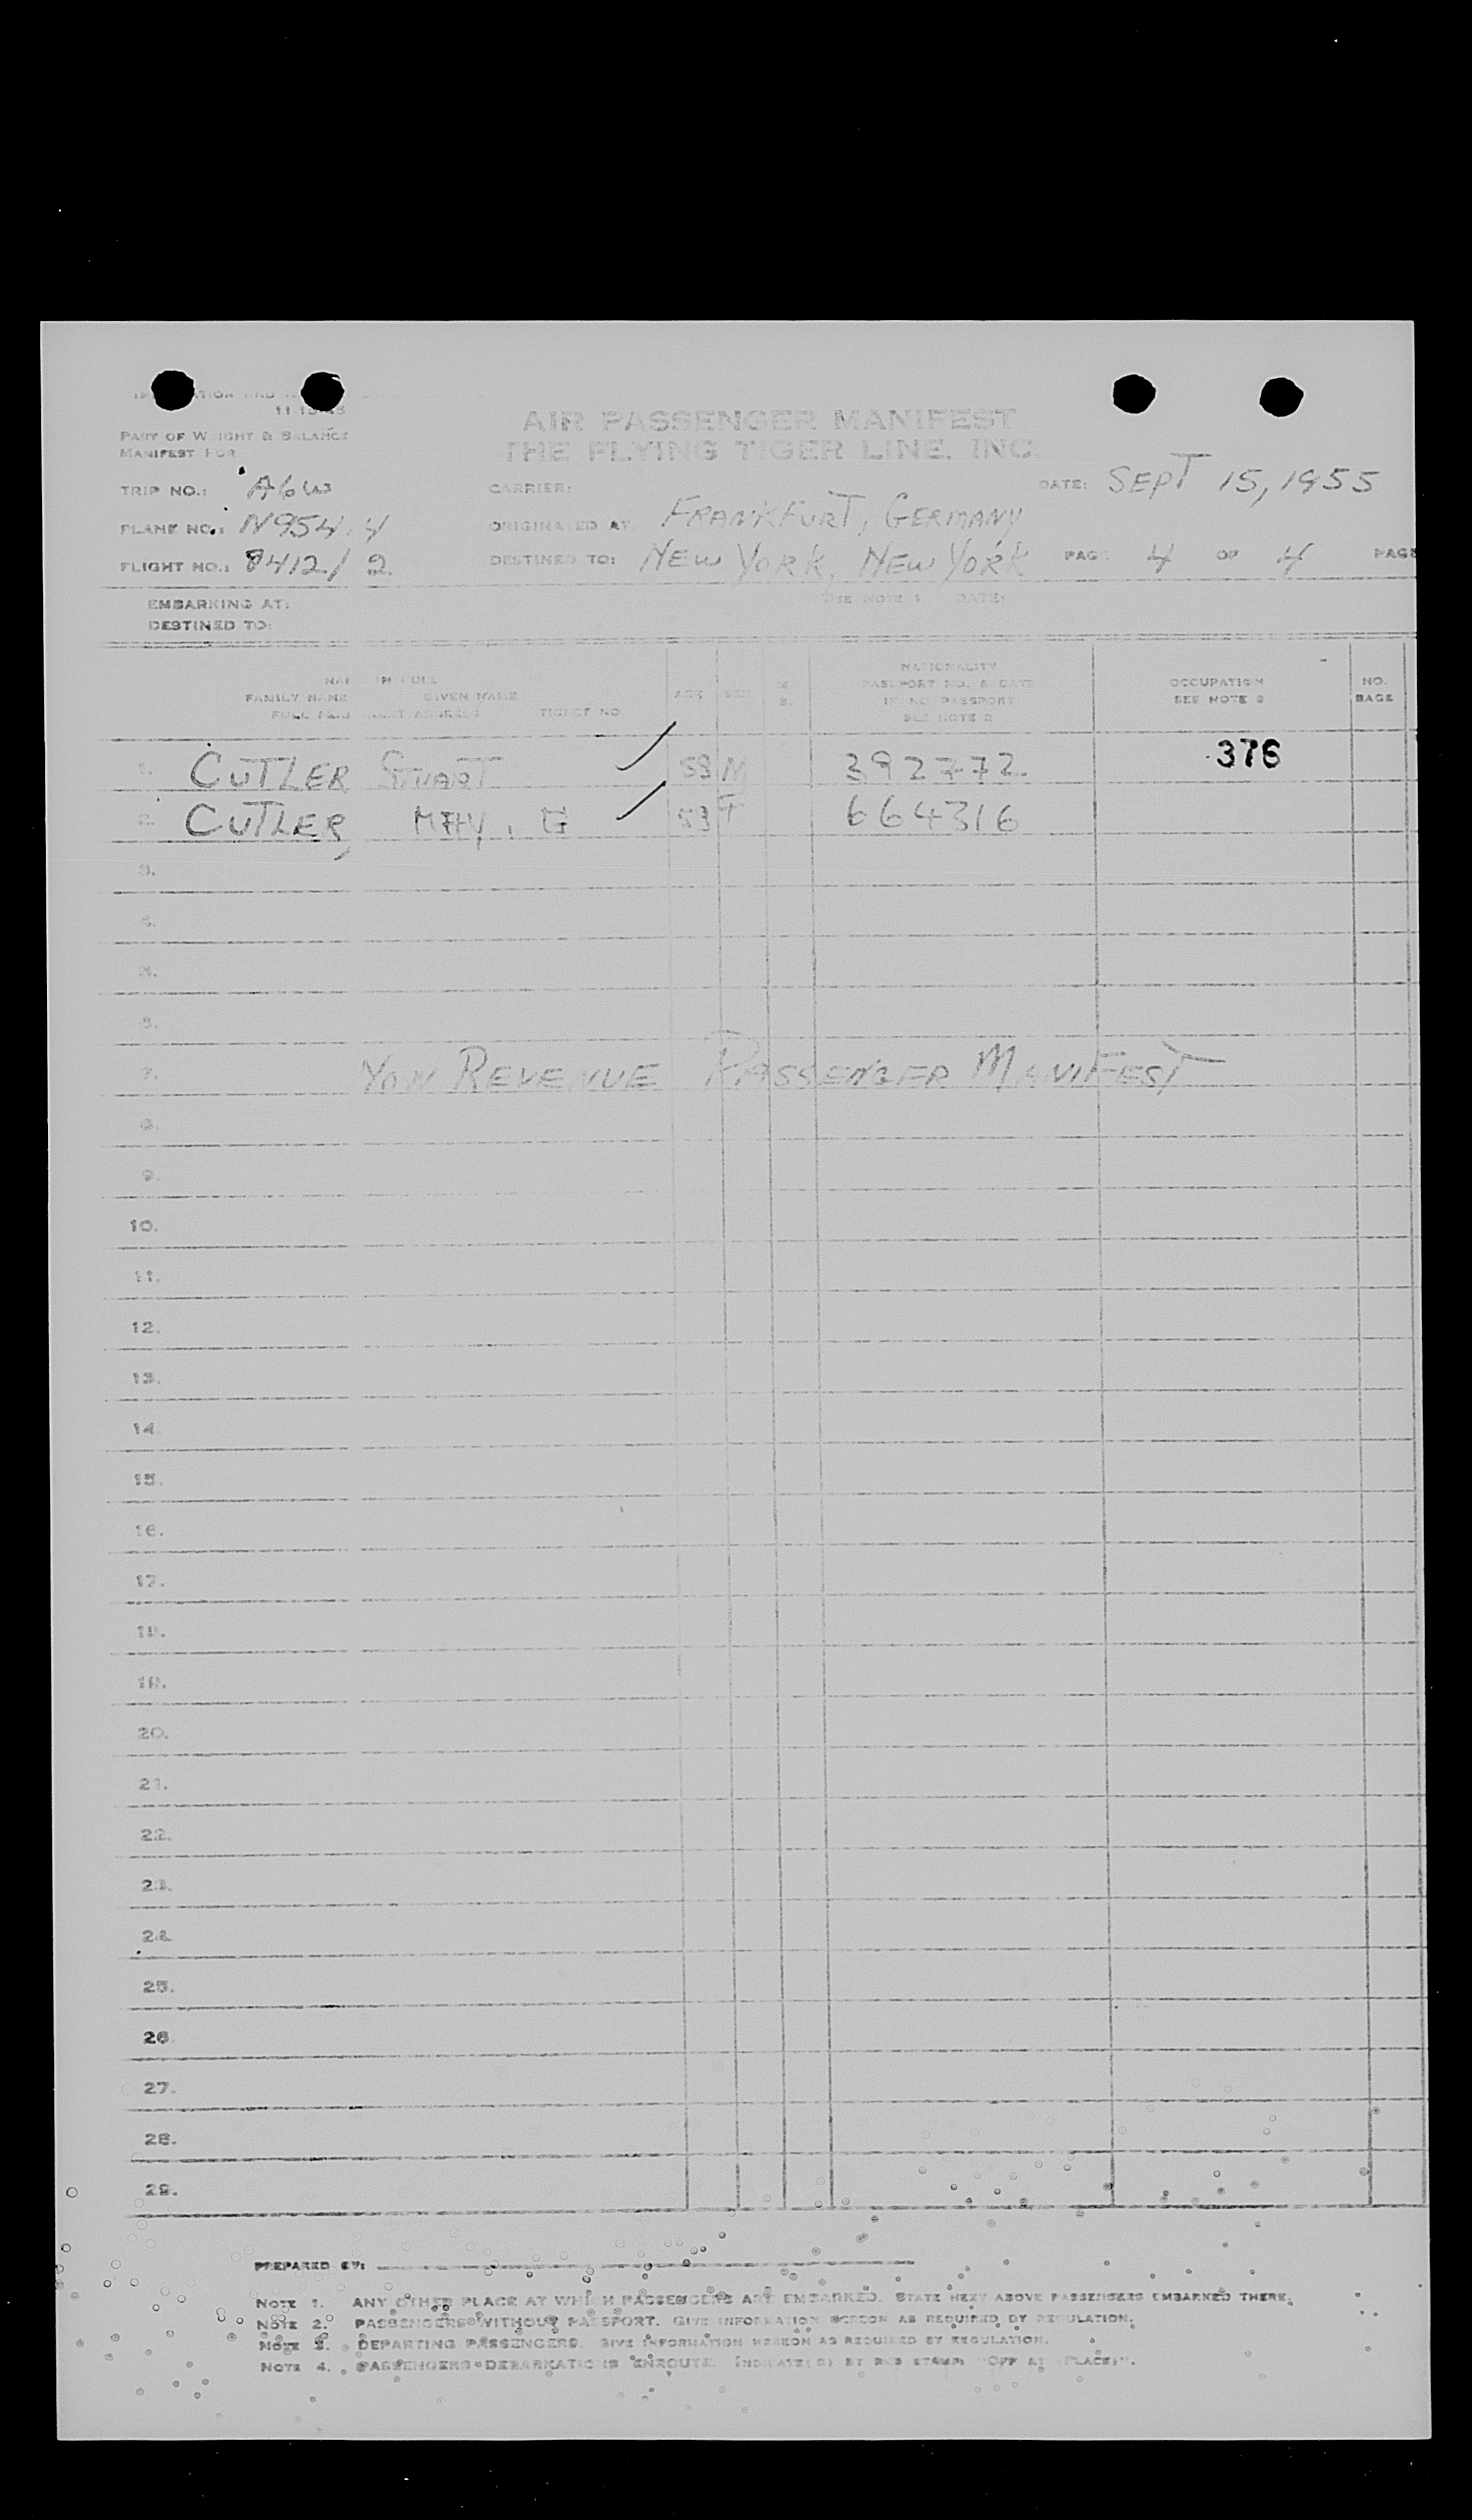 11-15-48
AIR PASSENGER MANIFEST
THE FLYING TIGER LINE, INC.
PART OF WEIGHT & BALANCE
MANIFEST FOR
TRIP NO.: A6W CARRIER: DATE: SEPT 15, 1955
PLANE NO.: N954 4 ORIGINATED AT FRANKFURT, GERMANY
FLIGHT NO.: 8412/2 DESTINED TO: NEW YORK, NEW YORK PAGE 4 OF 4 PAGE
EMBARKING AT: SEE NOTE 1 DATE:
DESTINED TO:
NAME IN FULL
FAMILY NAME GIVEN NAME
FULL PERMANENT ADDRESS TICKET NO
AGE SEX M S.
NATIONALITY
PASSPORT NO. & DATE
IF NO PASSPORT
SEE NOTE 2
OCCUPATION
SEE NOTE 3
NO.
BAGS
1. CUTLER STUART 58 M 392772. 376
2. CUTLER, MAY. G 53 F 664316
3.
4.
5.
6.
7. NON REVENUE PASSENGER MANIFEST
8.
9.
10.
11.
12.
13.
14.
15.
16.
17.
18.
19.
20.
21.
22.
23.
24.
25.
26.
27.
28.
29.
PREPARED BY:
NOTE 1. ANY OTHER PLACE AT WHICH PASSENGERS ARE EMBARKED. STATE NEXT ABOVE PASSENGERS EMBARKED THERE.
NOTE 2. PASSENGERS WITHOUT PASSPORT. GIVE INFORMATION HEREON AS REQUIRED BY REGULATION.
NOTE 3. DEPARTING PASSENGERS. GIVE INFORMATION HEREON AS REQUIRED BY REGULATION.
NOTE 4. PASSENGERS DEBARKATIONS ENROUTE. INDICATE(D) BY RED STAMP: "OFF AT (PLACE)".